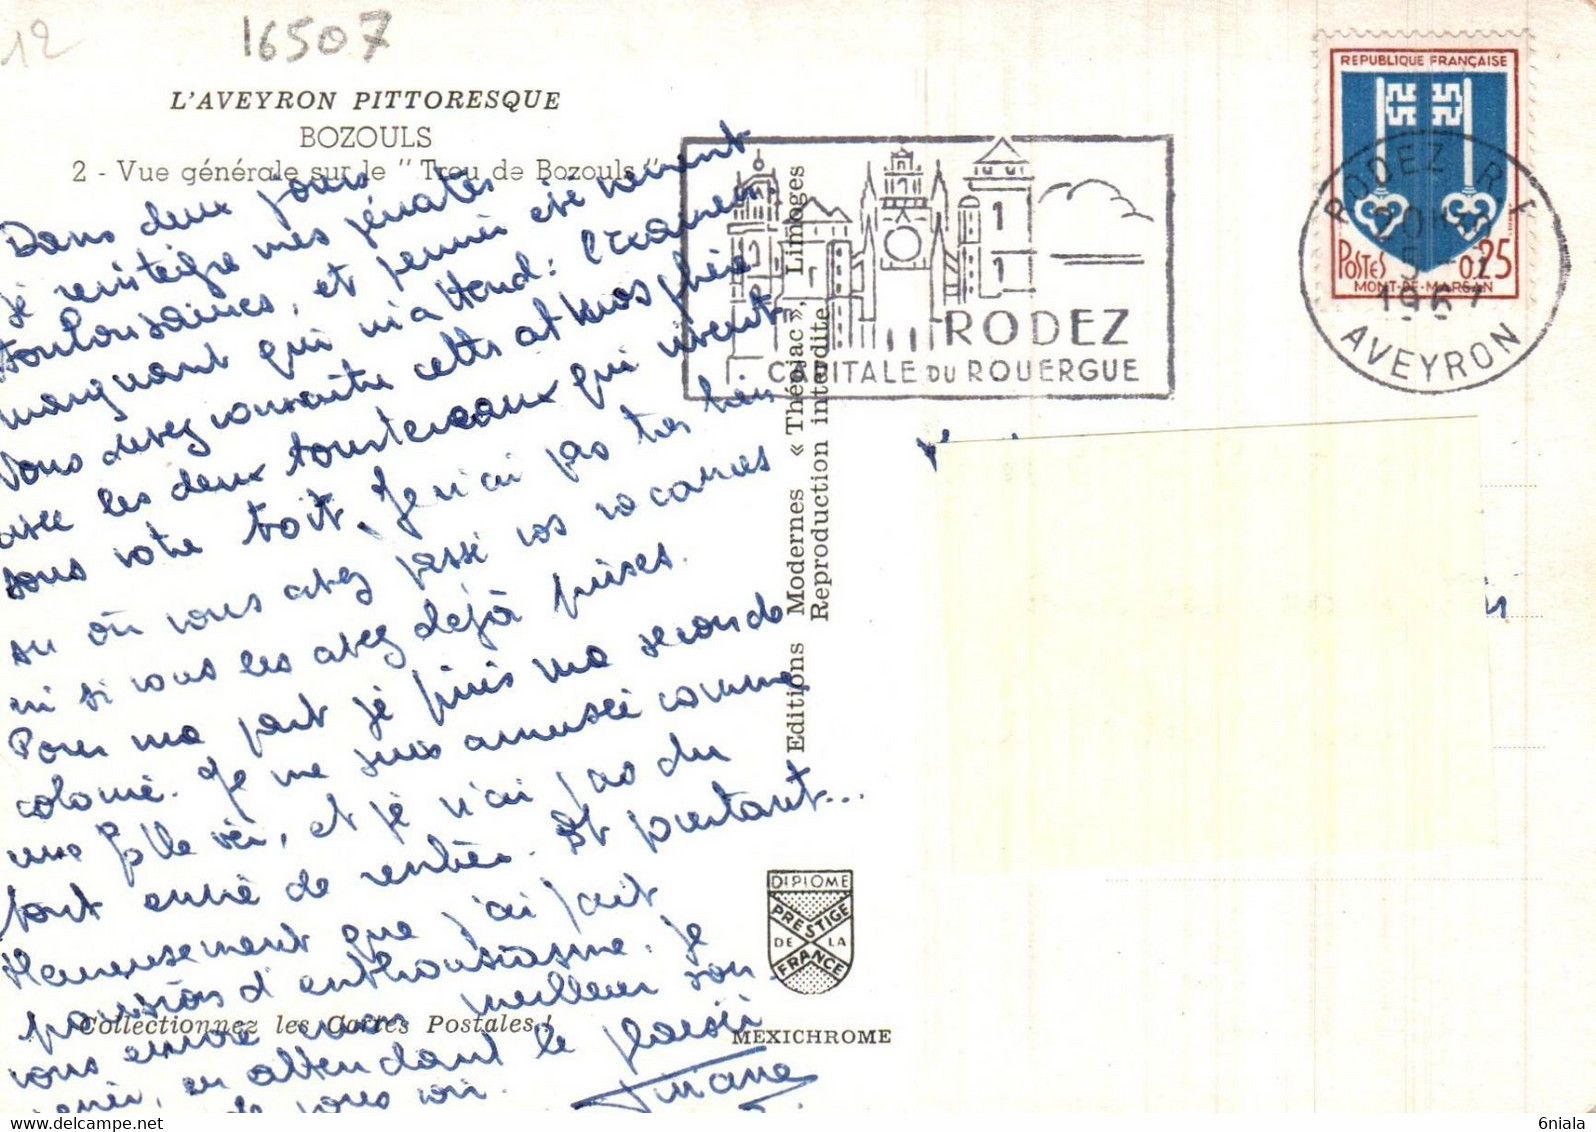 12
16507
L'AVEYRON PITTORESQUE
BOZOULS
2 - Vue générale sur le " Trou de Bozouls "
Dans deux jours
je réintègre mes pénates
toulousaines, et permis été vraiment
marquant qui m'attend : l'examen.
Vous devez connaître cette atmosphère
avec les deux tourtereaux qui vivent
sous votre toit. Je n'ai pas très bien
su où vous avez passé vos vacances
ni si vous les avez déjà prises.
Pour ma part je finis ma seconde
colonie. Je me suis amusée comme
une folle ici, et je n'ai pas du
tout envie de rentrer. Et pourtant...
Heureusement que j'ai fait
provision d'enthousiasme. Je
vous envoie mon meilleur sou-
venir, en attendant le plaisir
de vous voir.
Collectionnez les Cartes Postales !
Editions Modernes « Théojac », Limoges
Reproduction interdite
DIPLOME
PRESTIGE
DE LA
FRANCE
MEXICHROME
RODEZ
CAPITALE DU ROUERGUE
REPUBLIQUE FRANÇAISE
POSTES 0,25
MONT-DE-MARSAN
RODEZ R.P.
1967
AVEYRON
6niala